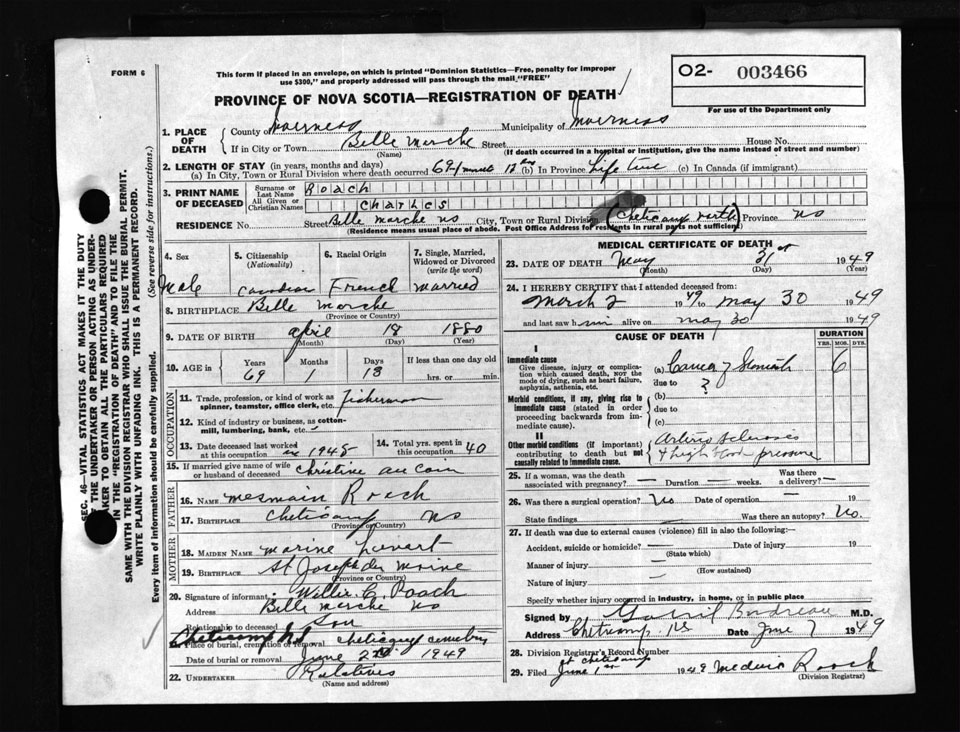 FORM 6
This form if placed in an envelope, on which is printed "Dominion Statistics—Free, penalty for improper
use $300," and properly addressed will pass through the mail "FREE"
O2- 003466
For use of the Department only
PROVINCE OF NOVA SCOTIA—REGISTRATION OF DEATH
1. PLACE OF DEATH
County of Inverness Municipality of Inverness
If in City or Town Belle Marche Street House No.
(Name) (If death occurred in a hospital or institution, give the name instead of street and number)
2. LENGTH OF STAY (in years, months and days)
(a) In City, Town or Rural Division where death occurred 69 (b) In Province Life time (c) In Canada (if immigrant)
3. PRINT NAME OF DECEASED
Surname or Last Name Roach
All Given or Christian Names Charles
RESIDENCE No. Street Belle Marche NS City, Town or Rural Division (Cheticamp North) Province NS
(Residence means usual place of abode. Post Office Address for residents in rural parts not sufficient)
4. Sex
Male
5. Citizenship (Nationality)
Canadian
6. Racial Origin
French
7. Single, Married, Widowed or Divorced (write the word)
married
8. BIRTHPLACE Belle Marche
(Province or Country)
9. DATE OF BIRTH april 18 1880
(Month) (Day) (Year)
10. AGE in Years Months Days If less than one day old
69 1 13 hrs. or min.
OCCUPATION
11. Trade, profession, or kind of work as spinner, teamster, office clerk, etc. fisherman
12. Kind of industry or business, as cotton-mill, lumbering, bank, etc.
13. Date deceased last worked at this occupation in 1948
14. Total yrs. spent in this occupation 40
15. If married give name of wife or husband of deceased Christine au Coin
FATHER
16. NAME Mesmain Roach
17. BIRTHPLACE Cheticamp NS
(Province or Country)
MOTHER
18. MAIDEN NAME
19. BIRTHPLACE St Joseph du Moine
(Province or Country)
20. Signature of informant Willie C. Roach
Address Belle Marche NS
Relationship to deceased Son
Cheticamp N.S
Place of burial, cremation or removal Cheticamp cemetery
Date of burial or removal June 2nd 1949
22. UNDERTAKER Relatives
(Name and address)
MEDICAL CERTIFICATE OF DEATH
23. DATE OF DEATH May 31st 1949
(Month) (Day) (Year)
24. I HEREBY CERTIFY that I attended deceased from:
March 2 1949 to May 30 1949
and last saw him alive on may 30 1949
CAUSE OF DEATH
DURATION
YRS. MOS. DYS.
I
Immediate cause
Give disease, injury or complication which caused death, not the mode of dying, such as heart failure, asphyxia, asthenia, etc.
(a) Cancer of Stomach 6
due to ?
Morbid conditions, if any, giving rise to immediate cause (stated in order proceeding backwards from immediate cause).
(b)
due to
(c)
II
Other morbid conditions (if important) contributing to death but not causally related to immediate cause.
Arterio sclerosis
+ high blood pressure
25. If a woman, was the death associated with pregnancy? — Duration — weeks. Was there a delivery? —
26. Was there a surgical operation? No Date of operation — 19
State findings — Was there an autopsy? No.
27. If death was due to external causes (violence) fill in also the following:—
Accident, suicide or homicide? — Date of injury 19
(State which)
Manner of injury —
(How sustained)
Nature of injury —
Specify whether injury occurred in industry, in home, or in public place
Signed by Boudreau M.D.
Address Cheticamp. N.S Date June 7 1949
28. Division Registrar's Record Number
29. Filed at Cheticamp June 1st 1949 Roach
(Division Registrar)
SEC. 46—VITAL STATISTICS ACT MAKES IT THE DUTY
OF THE UNDERTAKER OR PERSON ACTING AS UNDERTAKER TO OBTAIN ALL THE PARTICULARS REQUIRED
IN THE "REGISTRATION OF DEATH" AND TO FILE THE
SAME WITH THE DIVISION REGISTRAR WHO SHALL ISSUE THE BURIAL PERMIT.
WRITE PLAINLY WITH UNFADING INK. THIS IS A PERMANENT RECORD.
Every item of information should be carefully supplied. (See reverse side for instructions.)